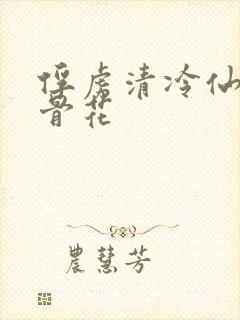 俘虏清冷仙
骨花
農慧芳